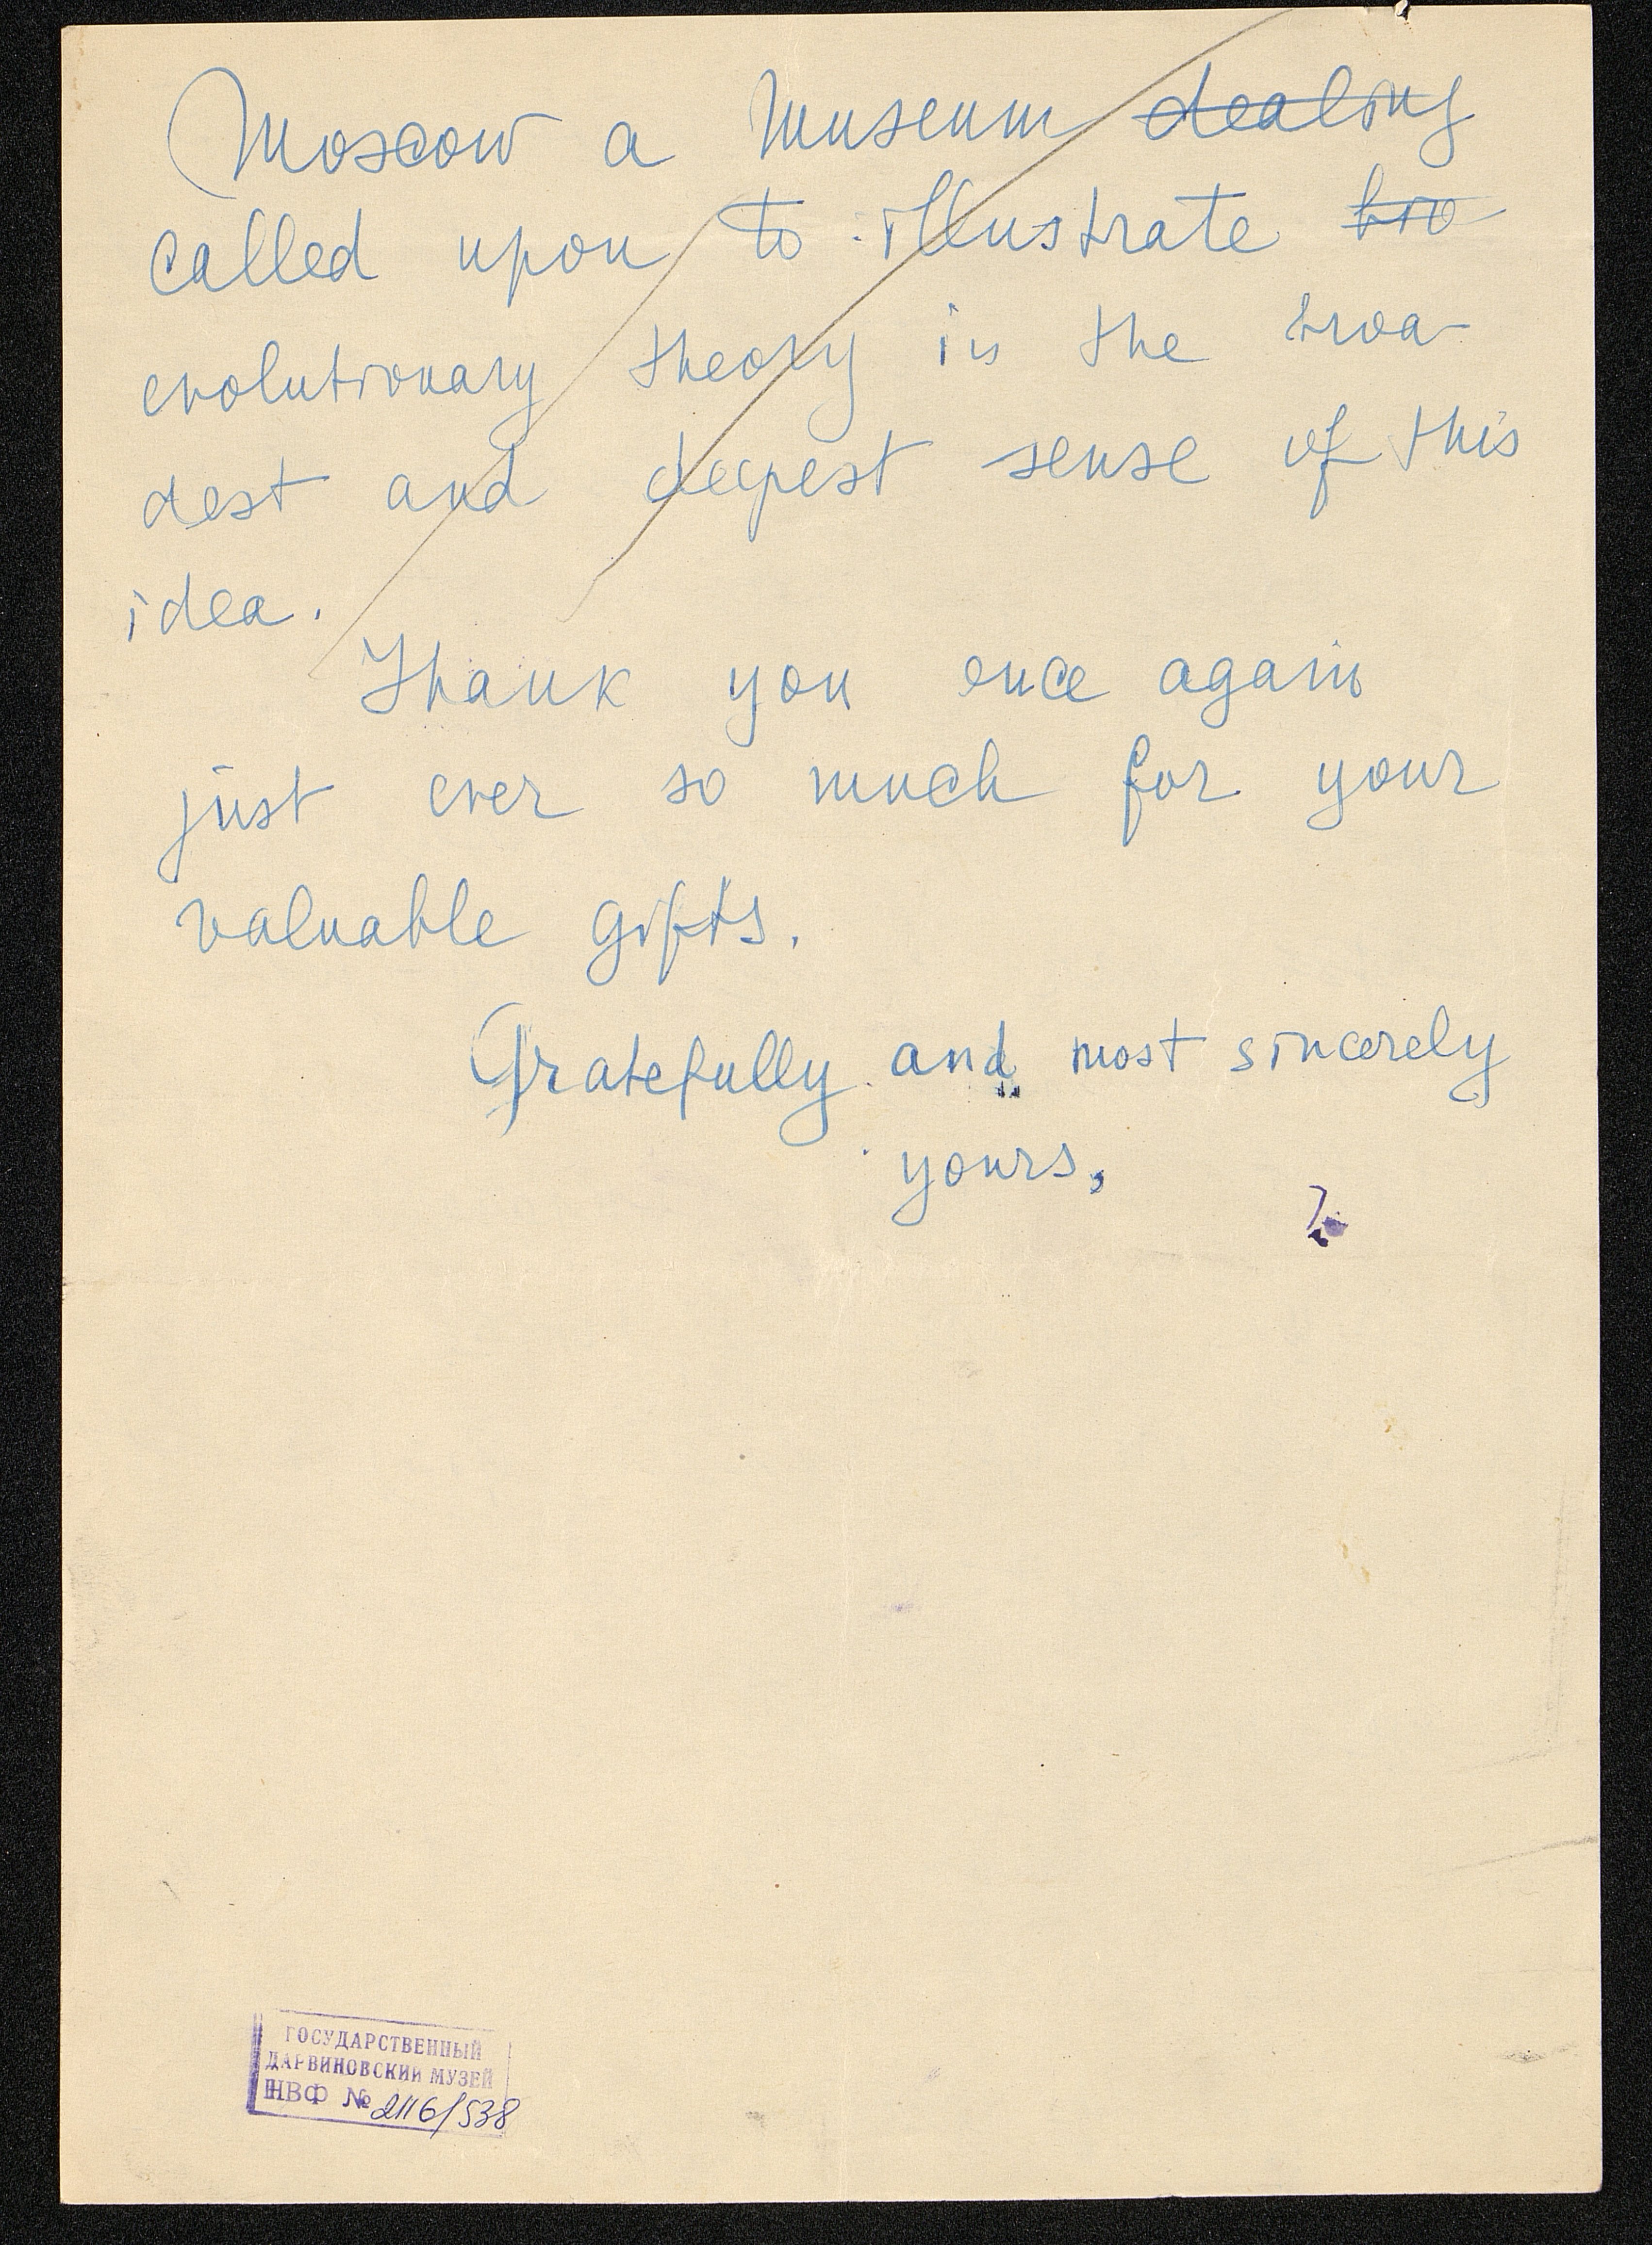 Moscow a Museum dealing
called upon to illustrate bro
evolutionary theory in the broa-
dest and deepest sense of this
idea.
Thank you once again
just ever so much for your
valuable gifts.
Gratefully and most sincerely
yours,
ГОСУДАРСТВЕННЫЙ
ДАРВИНОВСКИЙ МУЗЕЙ
НВФ № 2116/538